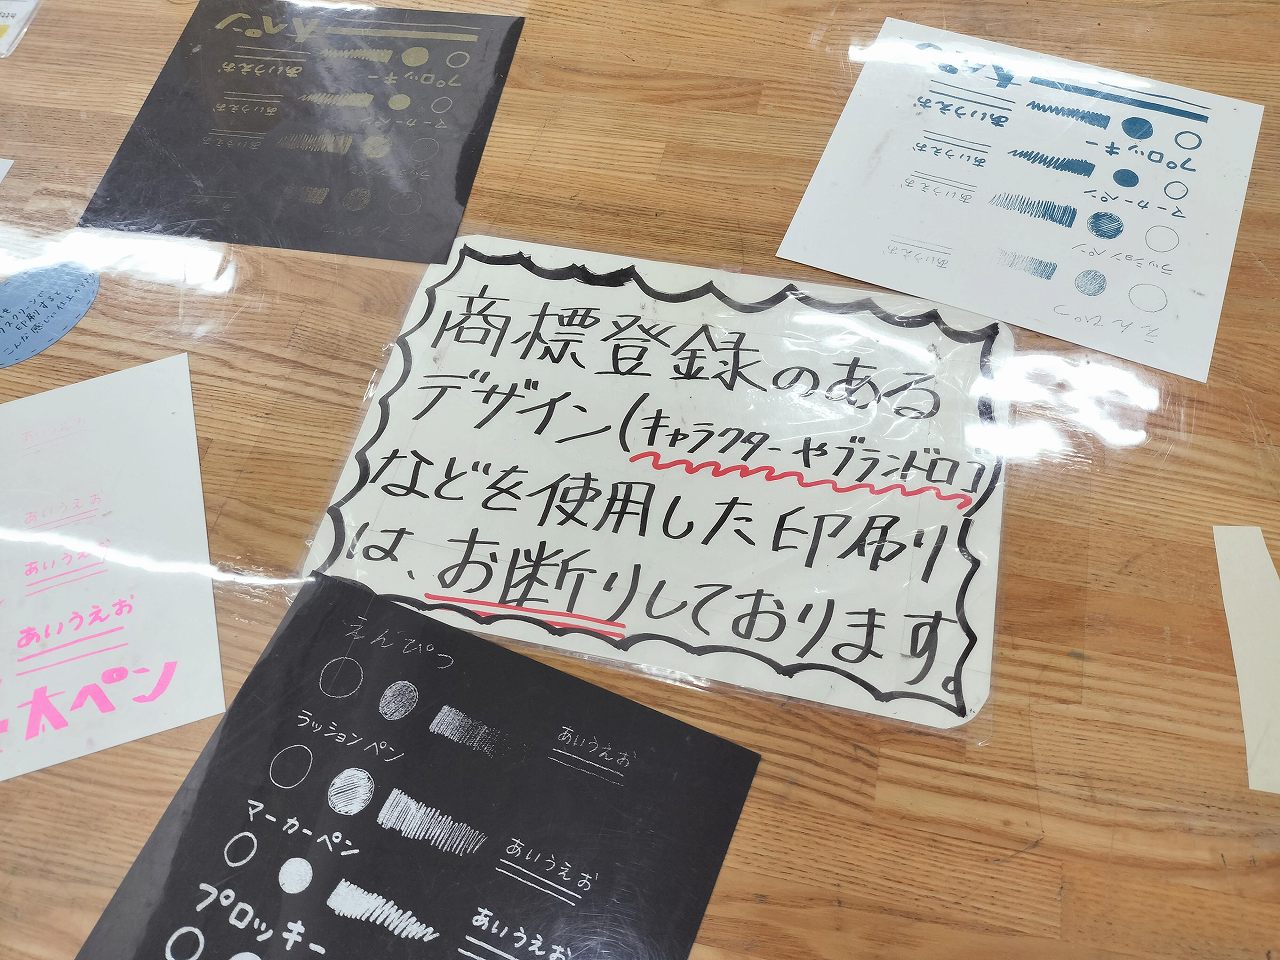 大ペン
プロッキー
あいうえお
マーカーペン
あいうえお
ラッションペン
あいうえお
えんぴつ
大ペン
あいうえお
プロッキー
あいうえお
マーカーペン
あいうえお
ラッションペン
あいうえお
えんぴつ
商標登録のある
デザイン(キャラクターやブランドロゴ)
などを使用した印刷
は、お断りしております。
あいうえお
あいうえお
あいうえお
あいうえお
大ペン
えんぴつ
あいうえお
ラッションペン
あいうえお
マーカーペン
あいうえお
プロッキー